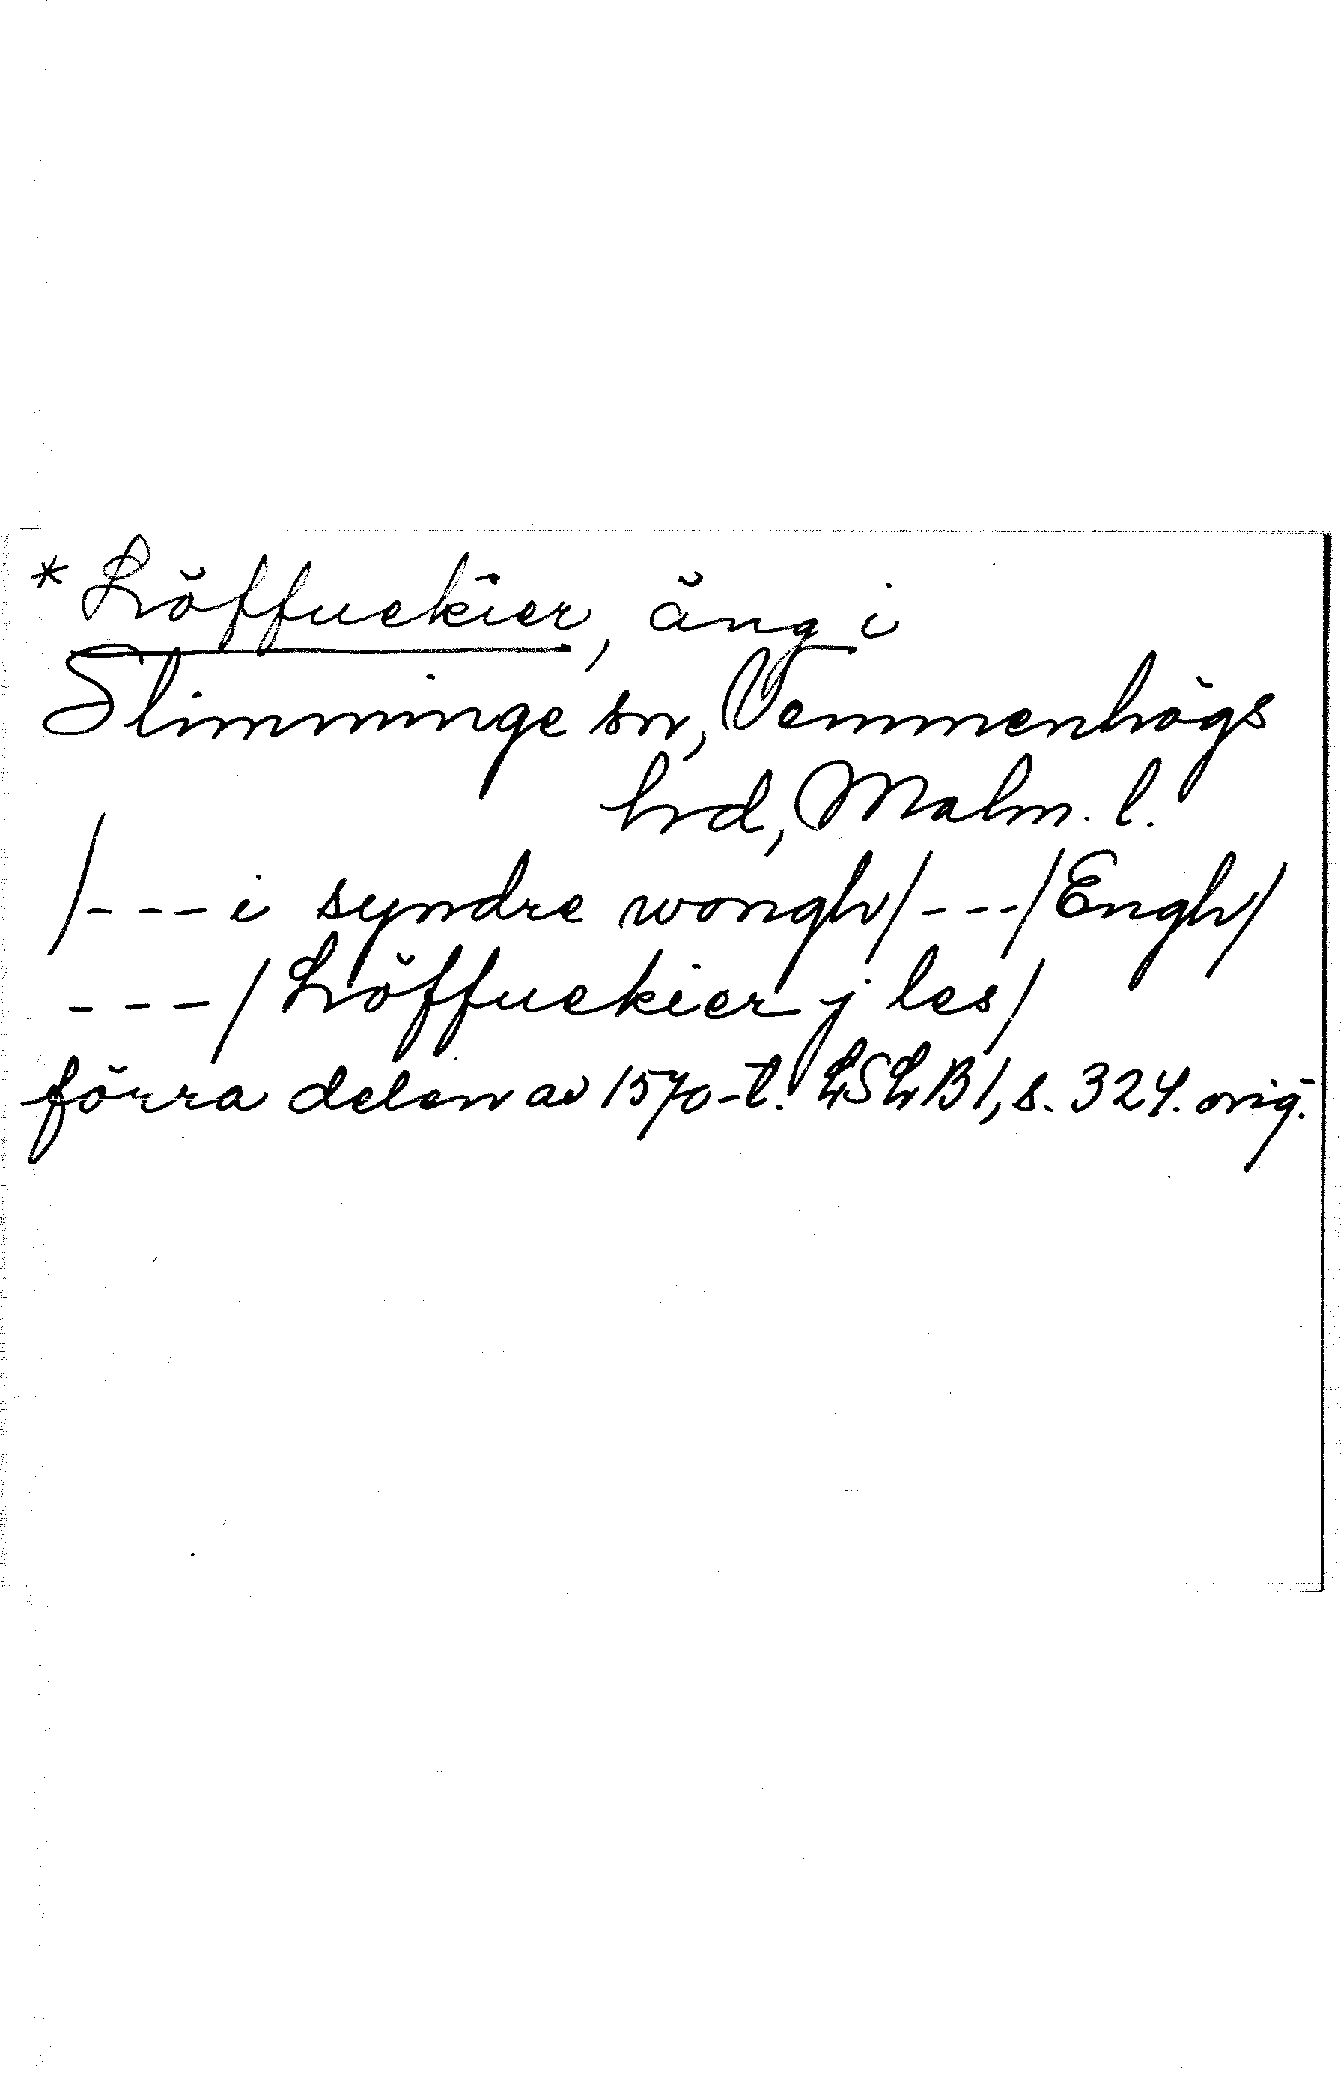 * Löffuekier, äng i
Slimminge sn, Vemmenhögs
hrd, Malm. l.
/--- i syndre wongh/---/Engh/
---/Löffuekier j les/
förra delen av 1570-t. LSLB1, s. 324. orig.